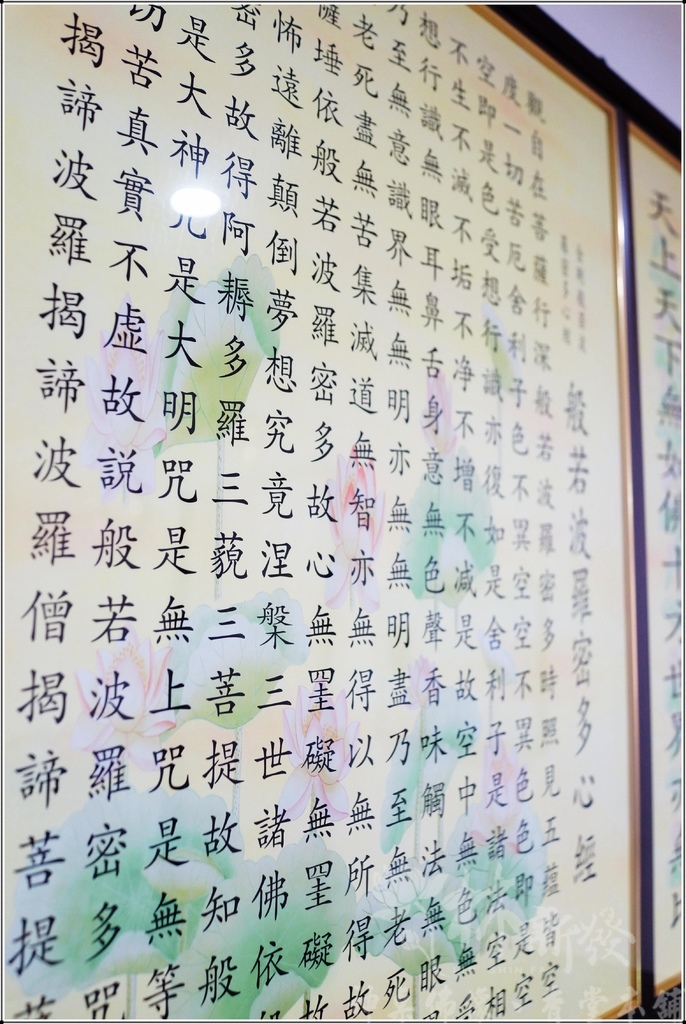 般若波羅密多心經
觀自在菩薩行深般若波羅密多時照見五蘊皆空
度一切苦厄舍利子色不異空空不異色色即是空
空即是色受想行識亦復如是舍利子是諸法空相
不生不滅不垢不净不增不減是故空中無色無受
想行識無眼耳鼻舌身意無色聲香味觸法無眼
乃至無意識界無無明亦無無明盡乃至無老死
老死盡無苦集滅道無智亦無得以無所得故
薩埵依般若波羅密多故心無罣礙無罣礙故
怖遠離顛倒夢想究竟涅槃三世諸佛依
密多故得阿耨多羅三藐三菩提故知般
是大神咒是大明咒是無上咒是無等
切苦真實不虛故說般若波羅密多咒
揭諦波羅揭諦波羅僧揭諦菩提
天上天下無如佛十方世界亦無比